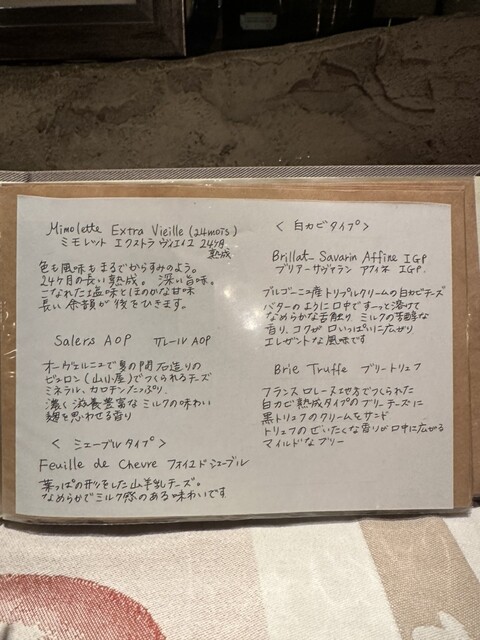 Mimolette Extra Vieille (24mois)
ミモレット エクストラ ヴィエイユ 24ヶ月
熟成
色も風味もまるでからすみのよう。
24ヶ月の長い熟成。深い旨味。
こなれた塩味とほのかな甘味
長い余韻が後をひきます。
Salers AOP サレール AOP
オーヴェルニュで夏の間石造りの
ビュロン(山小屋)でつくられるチーズ
ミネラル、カロテンたっぷり。
濃く滋養豊富なミルクの味わい
麹を思わせる香り
< シェーブルタイプ >
Feuille de Chevre フォイユ ド シェーブル
葉っぱの形をした山羊乳チーズ。
なめらかでミルク感のある味わいです
< 白カビタイプ >
Brillat-Savarin Affine IGP
ブリアーサヴァラン アフィネ IGP.
ブルゴーニュ産トリプルクリームの白カビチーズ
バターのように口中ですーっと溶けて
なめらかな舌触り、ミルクの芳醇な
香り、コクが口いっぱいに広がり
エレガントな風味です
Brie Truffe ブリートリュフ
フランスロレーヌ地方でつくられた
白カビ熟成タイプのブリーチーズに
黒トリュフのクリームをサンド
トリュフのぜいたくな香りが口中に広がる
マイルドなブリー